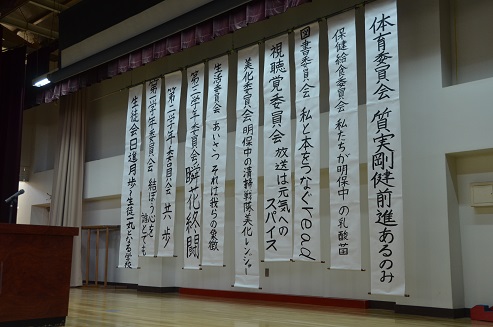 体育委員会 質実剛健前進あるのみ
保健給食委員会 私たちが明保中の乳酸菌
図書委員会 私と本をつなぐread
視聴覚委員会 放送は元気へのスパイス
美化委員会 明保中の清掃戦隊美化レンジャー
生活委員会 あいさつ それは我らの象徴
第三学年委員会 瞬花終闘
第二学年委員会 共歩
第一学年委員会 結ぼう心を 誰とでも
生徒会 日進月歩〜生徒一丸となる学校